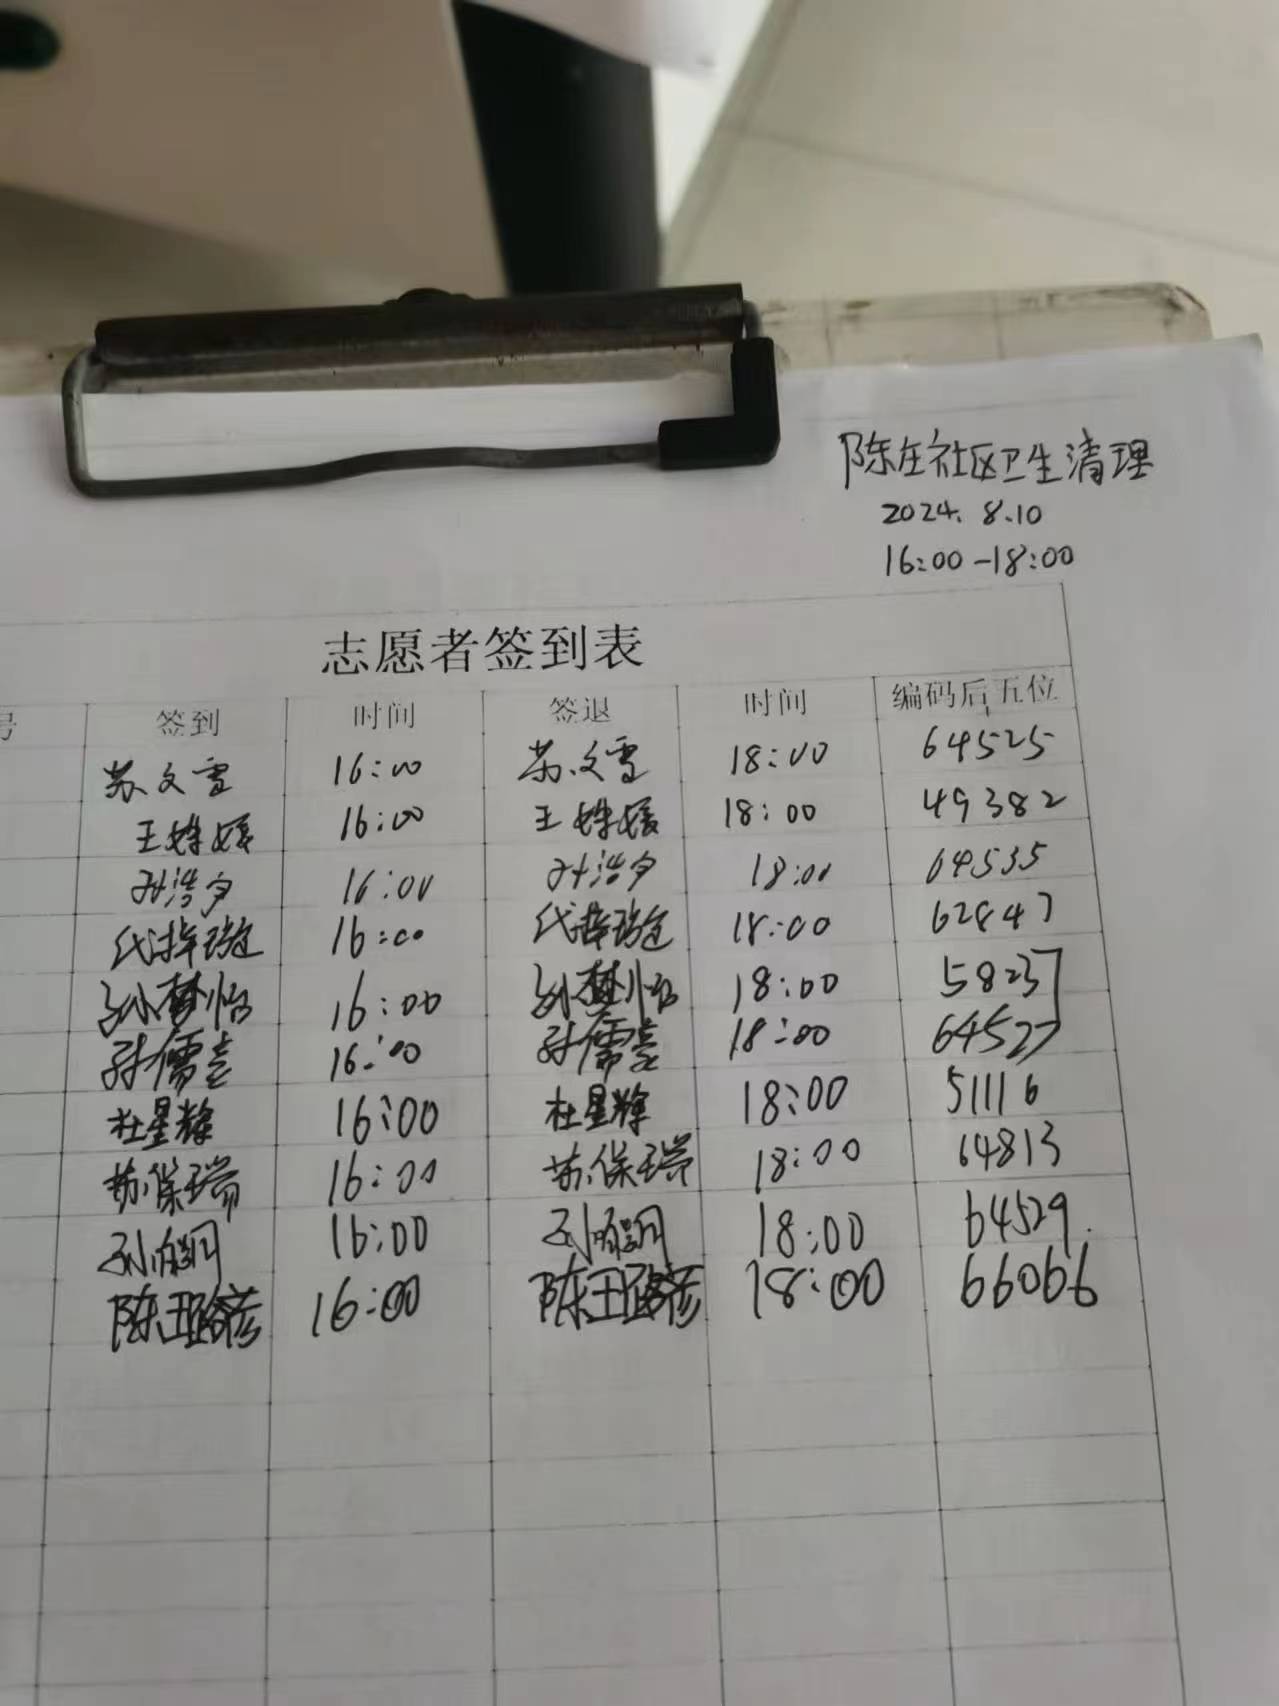 陈庄社区卫生清理
2024.8.10
16:00-18:00
志愿者签到表
号 签到 时间 签退 时间 编码后五位
苏文雪 16:00 苏文雪 18:00 64525
王姝媛 16:00 王姝媛 18:00 49382
孙浩夕 16:00 孙浩夕 18:00 64535
代 16:00 代 18:00 62847
孙梦怡 16:00 孙梦怡 18:00 5823
孙儒 16:00 孙儒 18:00 64527
杜星辉 16:00 杜星辉 18:00 51116
苏保瑞 16:00 苏保瑞 18:00 64813
孙 16:00 孙 18:00 64529.
陈 16:00 陈 18:00 66066